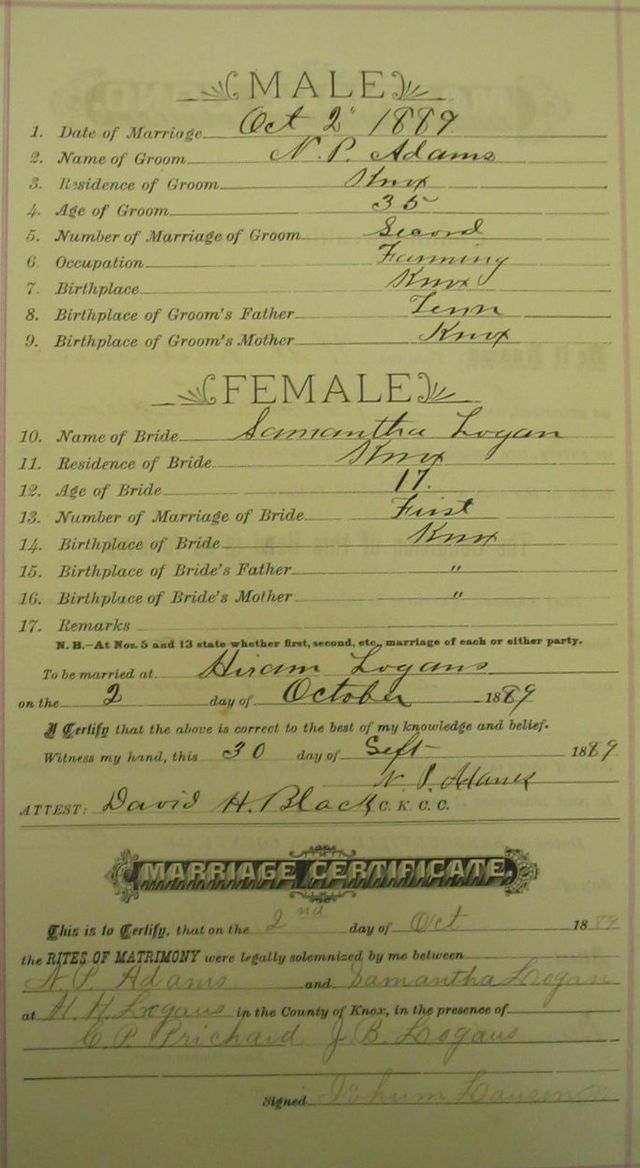 MALE
1. Date of Marriage Oct 2" 1889
2. Name of Groom N. P. Adams
3. Residence of Groom Knox
4. Age of Groom 35
5. Number of Marriage of Groom Second
6. Occupation Farming
7. Birthplace Knox
8. Birthplace of Groom's Father Tenn
9. Birthplace of Groom's Mother Knox
FEMALE
10. Name of Bride Samantha Logan
11. Residence of Bride Knox
12. Age of Bride 17.
13. Number of Marriage of Bride First
14. Birthplace of Bride Knox
15. Birthplace of Bride's Father "
16. Birthplace of Bride's Mother "
17. Remarks
N. B.—At Nos. 5 and 13 state whether first, second, etc., marriage of each or either party.
To be married at Hiram Logans
on the 2 day of October 1889
I Certify that the above is correct to the best of my knowledge and belief.
Witness my hand, this 30 day of Sept 1889
N. P. Adams
ATTEST: David H. Black C. K. C. C.
MARRIAGE CERTIFICATE.
This is to Certify, that on the 2nd day of Oct 1889
the RITES OF MATRIMONY were legally solemnized by me between
N. P. Adams and Samantha Logan
at H. K. Logans in the County of Knox, in the presence of
C. P. Prichard J. B. Logans
Signed